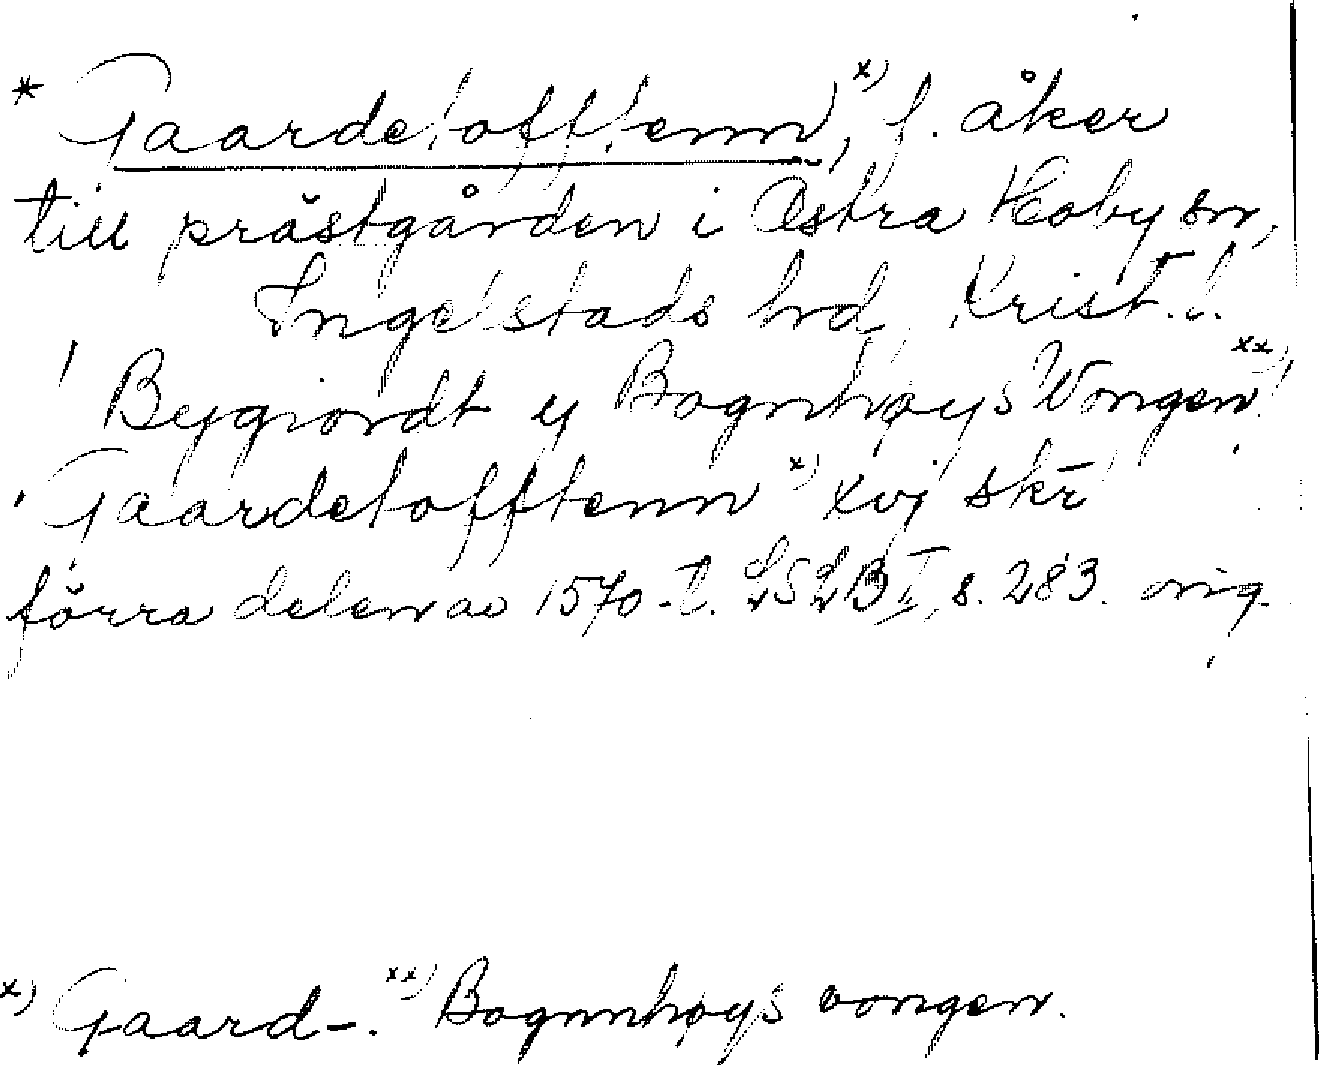 * Gaardetofftenn x), f. åker
till prästgården i Östra Hoby sn,
Ingelstads hd, Krist. l.
Bygiordt y Bognhøys Wongen xx)
Gaardetofftenn x) xvj skr
förra delen av 1570-t. LSLB I, s. 283. orig.
x) Gaard-. xx) Bognnhøys vongen.